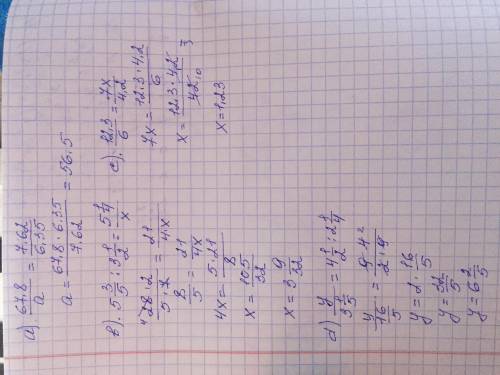 a) 67.8/a = 7.62/6.35
a = 67.8·6.35/7.62 = 56.5
b). 5 3/5 : 3 1/2 = 5 1/4/x
28·2/5·7 = 21/4x
8/5 = 21/4x
4x = 5·21/8
x = 105/32
x = 3 9/32
c). 12.3/6 = 7x/4.2
7x = 12.3·4.2/6
x = 12.3·4.2/42
x = 1.23
d) y/3 1/5 = 4 1/2 : 2 1/4
y/16/5 = 9·4/2·9
y = 2·16/5
y = 32/5
y = 6 2/5